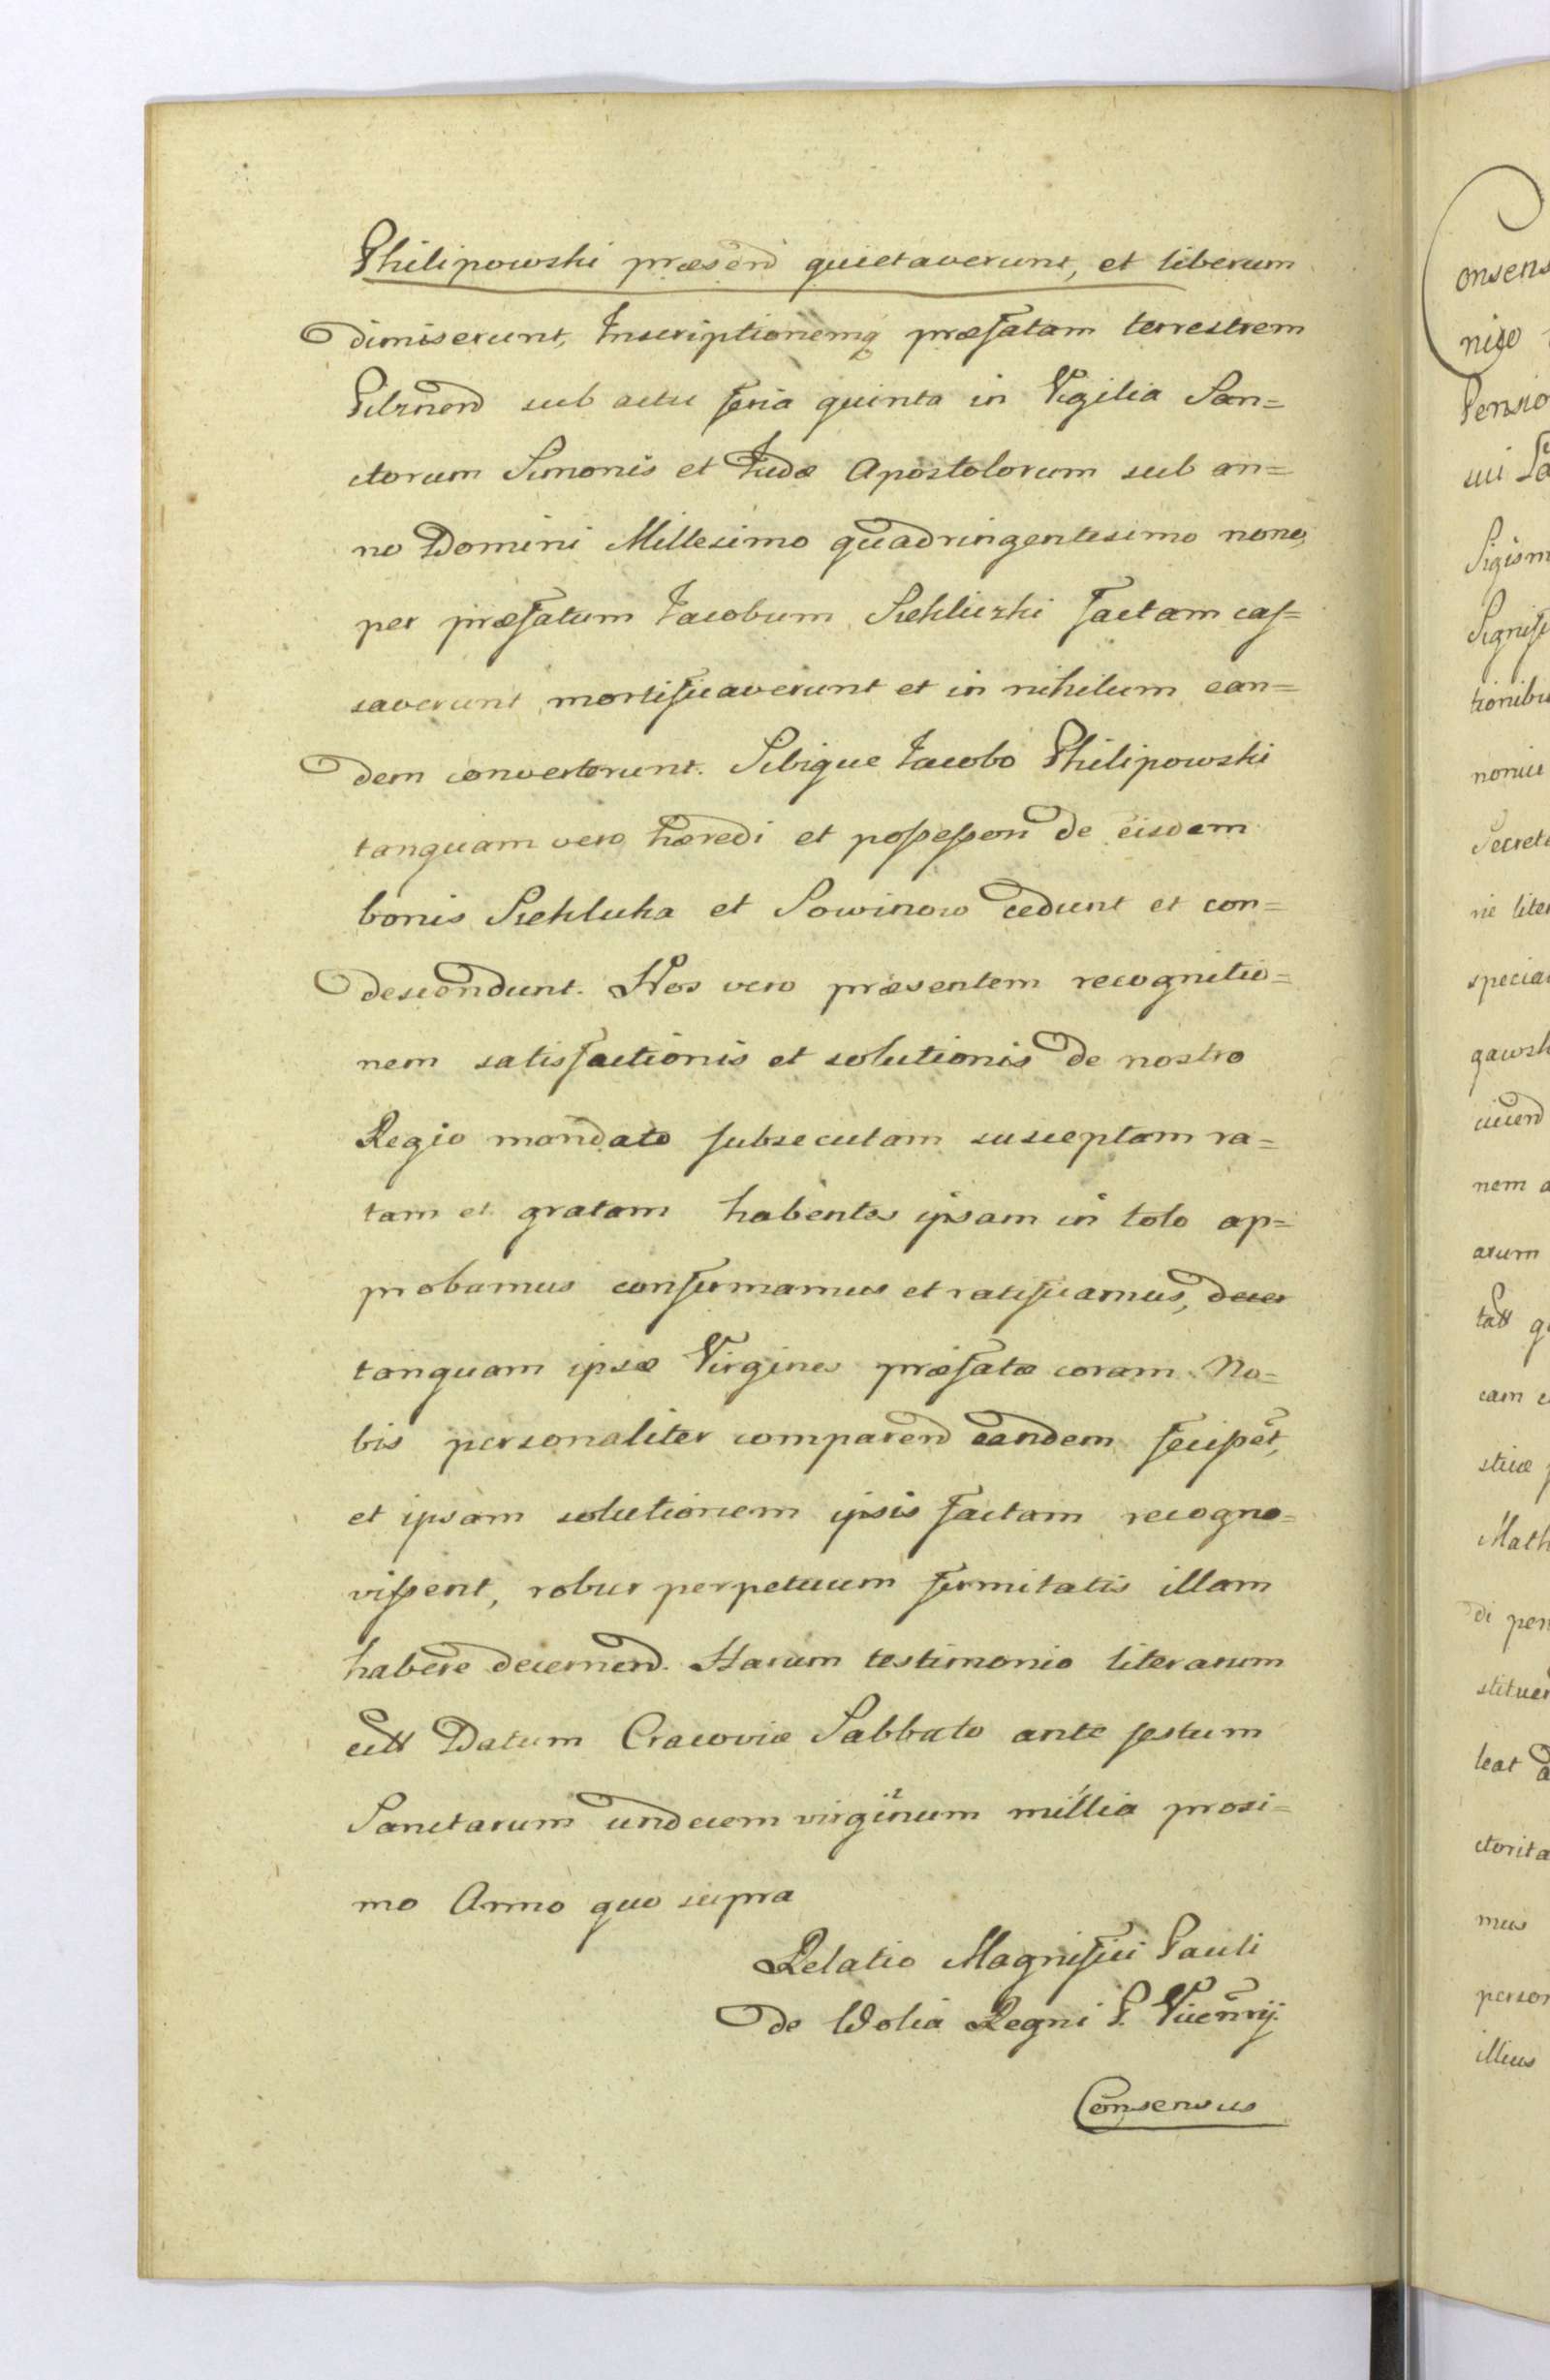 Philipowski præsend quietaverunt, et liberum
dimiserunt, Inscriptionemq præfatam terrestrem
Pilznend sub actu feria quinta in Vigilia San=
ctorum Simonis et Judæ Apostolorum sub an=
no Domini Millesimo quadringentesimo nono,
per præfatum Jacobum Siekliczki factam cas=
saverunt, mortificaverunt et in nihilum ean=
dem converterunt. Sibique Jacobo Philipowski
tanquam vero hæredi et possessori de eisdem
bonis Siekluka et Sowinow cedunt et con=
descendunt. Nos vero præsentem recognitio=
nem satisfactionis et solutionis de nostro
Regio mandato subsecutam susceptam ra=
tam et gratam habentes ipsam in toto ap=
probamus confirmamus et ratificamus, decer
tanquam ipsæ Virgines præfatæ coram No=
bis personaliter comparend eandem fecissét,
et ipsam solutionem ipsis factam recogno=
vissent, robur perpetuum firmitatis illam
habere decernend. Harum testimonio literarum
ett Datum Cracoviæ Sabbato ante festum
Sanctarum undecem virginum millia proxi=
mo Anno quo supra
Relatio Magnifici Pauli
de Wolia Regni P. Vicenrij.
Consensus
onsens
Pensio
Sigism
Signifi
tionibu
nonici
Secreta
rie liter
special
gawsk
nem a
arum
tatt q
cam e
Math
di per
stituen
leat
ctorita
mus
person
illius